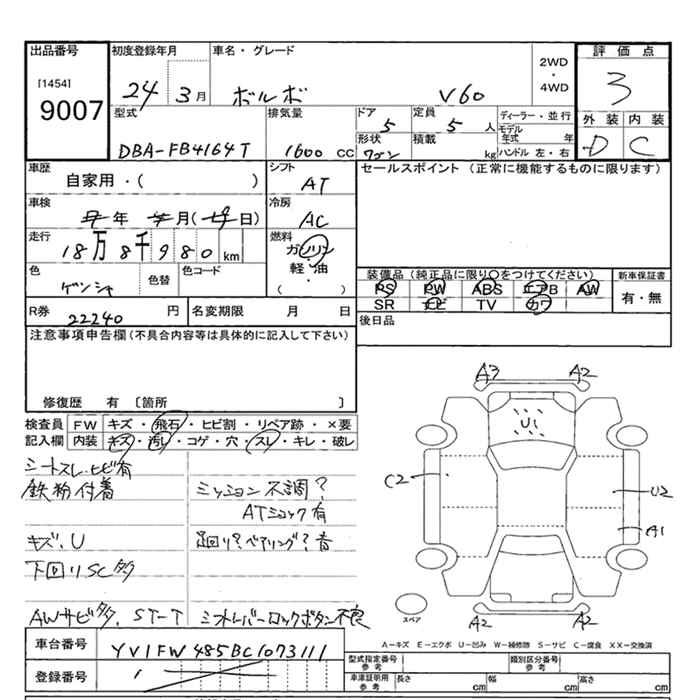 出品番号 初度登録年月 車名・グレード 2WD・4WD 評価点
[1454]
9007
24 3月 ボルボ V60 3
型式 排気量 ドア 定員 ディーラー・並行 外装 内装
DBA-FB4164T 1600 CC 5 5人 モデル年式 年 D C
形状 積載 kg ハンドル 左・右
ワゴン
車歴 シフト セールスポイント (正常に機能するものに限ります)
自家用・( ) AT
車検 冷房
年 月( 日) AC
走行 燃料
18万8千980km ガソリン・軽・油・( )
装備品 (純正品に限り○をつけてください) 新車保証書
色 色替 色コード
ゲンシャ
PS PW ABS エアB AW 有・無
SR ナビ TV カワ
R券 22240円 名変期限 月 日 後日品
注意事項申告欄(不具合内容等は具体的に記入して下さい)
修復歴 有 〔箇所 〕
検査員記入欄 FW キズ・飛石・ヒビ割・リペア跡・×要
内装 キズ・汚レ・コゲ・穴・スレ・キレ・破レ
シートスレ.ヒビ有
鉄粉付着 ミッション不調?
ATショック有
キズ.U 足回り?ベアリング?音
下回りSC多
AWサビ多. ST-T シフトレバーロックボタン不良
A3 A2
U1
C2 U2
A1
スペア
A2 A2
A-キズ E-エクボ U-凹み W-補修跡 S-サビ C-腐食 XX-交換済
車台番号 YV1FW485BC1073111
登録番号
型式指定番号参考 類別区分番号参考
車庫証明用参考 長さ cm 幅 cm 高さ cm